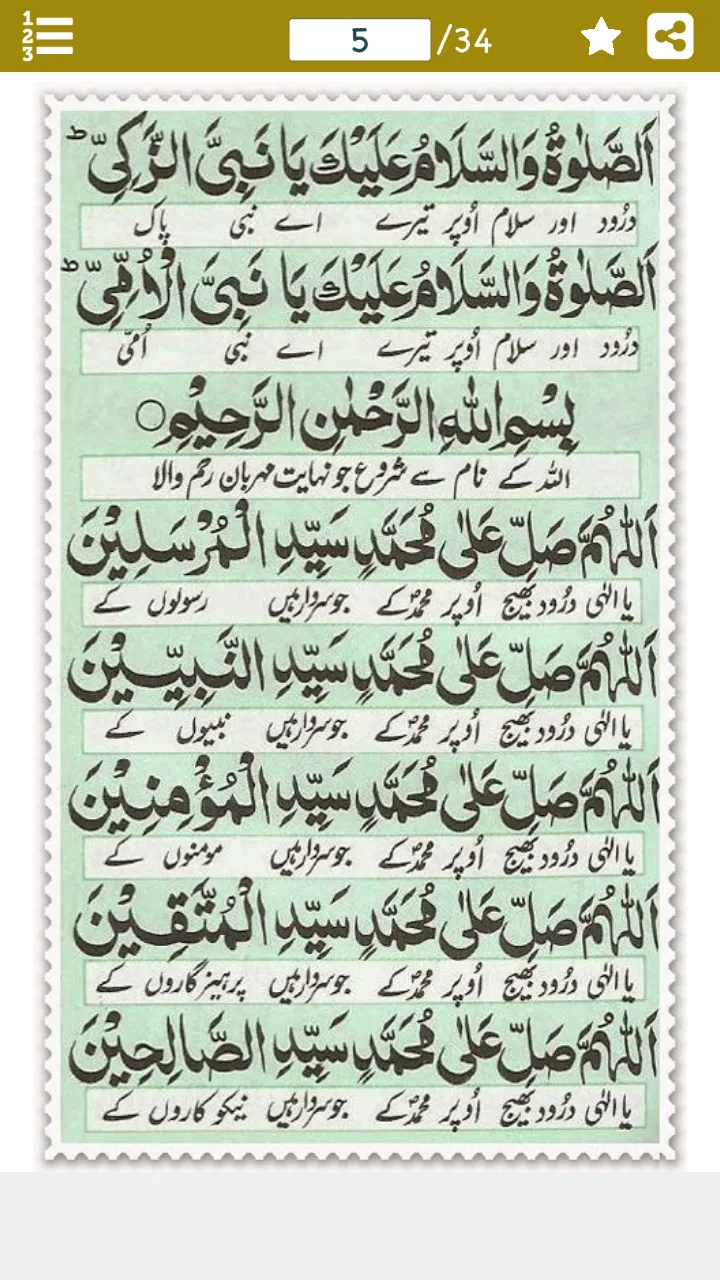 1
2
3
5 /34
اَلصَّلٰوةُ وَالسَّلَامُ عَلَيْكَ يَا نَبِىَّ الزَّكِىِّ ؕ
درُود اور سلام اوُپر تیرے اے نبی پاک
اَلصَّلٰوةُ وَالسَّلَامُ عَلَيْكَ يَا نَبِىَّ الْاُمِّىِّ ؕ
درُود اور سلام اوُپر تیرے اے نبی اُمّی
بِسْمِ اللهِ الرَّحْمٰنِ الرَّحِيْمِ ○
اللہ کے نام سے شروع جو نہایت مہربان رحم والا
اَللّٰهُمَّ صَلِّ عَلٰى مُحَمَّدٍ سَيِّدِ الْمُرْسَلِيْنَ
یا الہٰی درُود بھیج اُوپر محمدؐ کے جو سردار ہیں رسولوں کے
اَللّٰهُمَّ صَلِّ عَلٰى مُحَمَّدٍ سَيِّدِ النَّبِيِّيْنَ
یا الہٰی درُود بھیج اُوپر محمدؐ کے جو سردار ہیں نبیوں کے
اَللّٰهُمَّ صَلِّ عَلٰى مُحَمَّدٍ سَيِّدِ الْمُؤْمِنِيْنَ
یا الہٰی درُود بھیج اُوپر محمدؐ کے جو سردار ہیں مومنوں کے
اَللّٰهُمَّ صَلِّ عَلٰى مُحَمَّدٍ سَيِّدِ الْمُتَّقِيْنَ
یا الہٰی درُود بھیج اُوپر محمدؐ کے جو سردار ہیں پرہیزگاروں کے
اَللّٰهُمَّ صَلِّ عَلٰى مُحَمَّدٍ سَيِّدِ الصَّالِحِيْنَ
یا الہٰی درُود بھیج اُوپر محمدؐ کے جو سردار ہیں نیکو کاروں کے